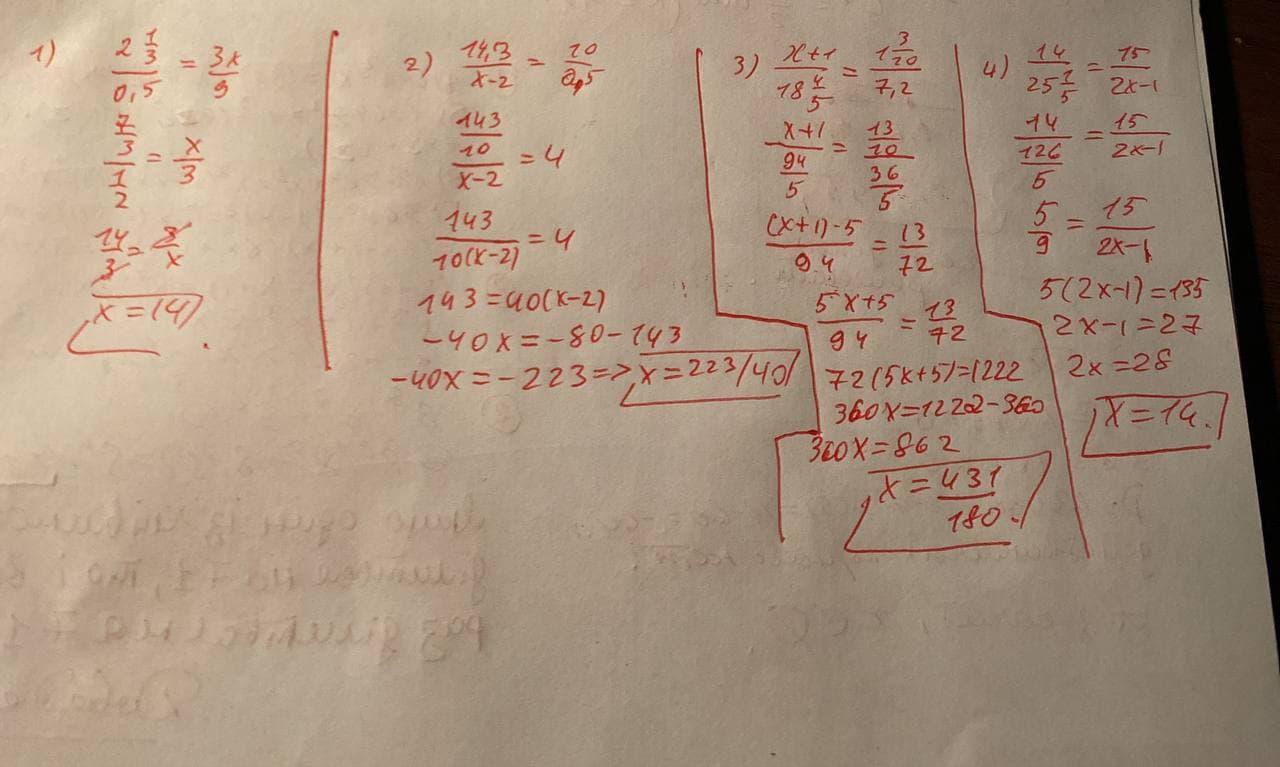 1) 2 1/3 / 0,5 = 3x/9
7/3 / 1/2 = x/3
14/3 = 3/x
x = 14
2) 14,3/x-2 = 10/2,5
143/10 / x-2 = 4
143/10(x-2) = 4
143 = 40(x-2)
-40x = -80-143
-40x = -223 => x = 223/40
3) x+1 / 18 4/5 = 1 3/10 / 7,2
x+1 / 94/5 = 13/10 / 36/5
(x+1)·5/94 = 13/72
5x+5/94 = 13/72
72(5x+5)=1222
360x=1222-360
360x=862
x = 431/180.
4) 14 / 25 1/5 = 15/2x-1
14 / 126/5 = 15/2x-1
5/9 = 15/2x-1
5(2x-1)=135
2x-1=27
2x=28
x=14.